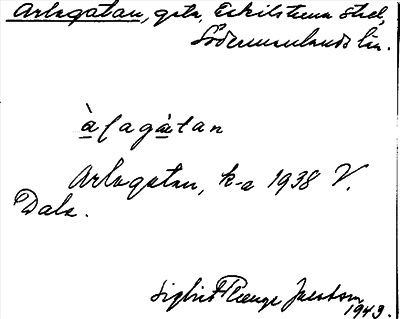 Arlagatan, gata, Eskilstuna stad,
Södermanlands län.
àlagàtan
Arlagatan, k-a 1938 V.
Dala.
Sigbrit Plænge Jacobson
1943.